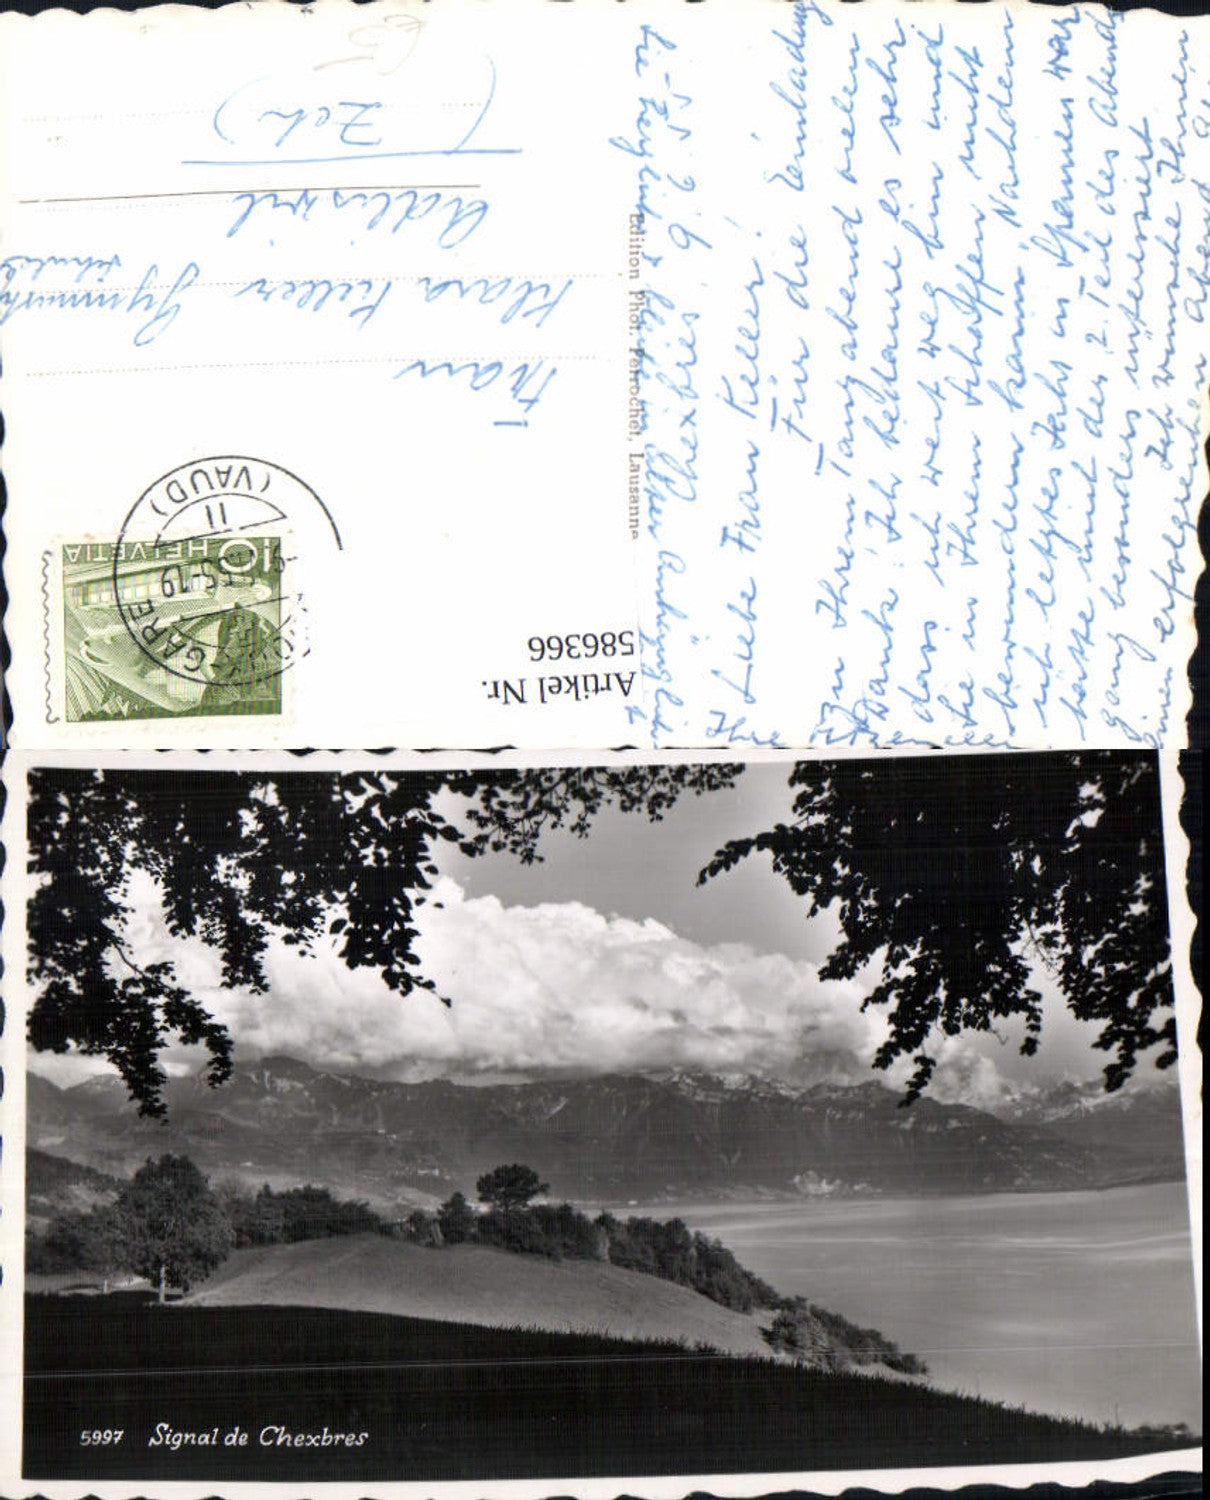 Chexbres 6. 5.
Liebe Frau Keller!
Für die Einladung
zu Ihrem Tanzabend vielen
Dank! Ich bedaure es sehr
dass ich weit weg bin und
Sie in Ihrem Schaffen nicht
bewundern kann. Nachdem
ich letztes Jahr in Spannen war
hätte mich der 2. Teil des Abends
ganz besonders interessiert
Ich wünsche Ihnen
einen erfolgreichen Abend
Edition Phot. Perrochet, Lausanne
Frau
Klara Keller
Adliswil
(Zch)
HELVETIA
10
GARE
(VAUD)
II
Artikel Nr.
586366
5997 Signal de Chexbres